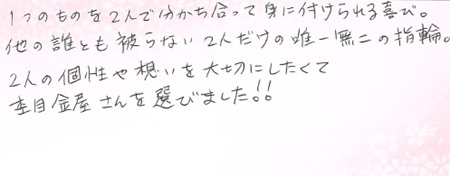 1つのものを2人で分かち合って身に付けられる喜び。
他の誰とも被らない2人だけの唯一無二の指輪。
2人の個性や想いを大切にしたくて
杢目金屋さんを選びました!!